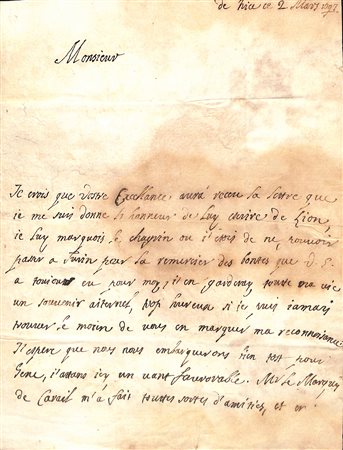 de Nice ce 2 Mars 1697
Monsieur
Je crois que Vostre Excellance, aura receu la lettre que
ie me suis donné l'honneur de luy ecrire de Lion,
ie luy marquois le chagrin ou i'etois de ne pouvoir
passer a Turin pour la remercier des bontes que V. E.
a toujours eu pour moy, i'en garderay toutte ma vie
un souvenir aiternel, trop hureux si ie puis iamais
trouver le moien de vous en marquer ma reconnoisance
J'espere que nous nous embarquerons bien tost pour
Gene, i'attans icy un vant favorable. Mr le Marquis
de Carail m'a fait touttes sortes d'amities, et